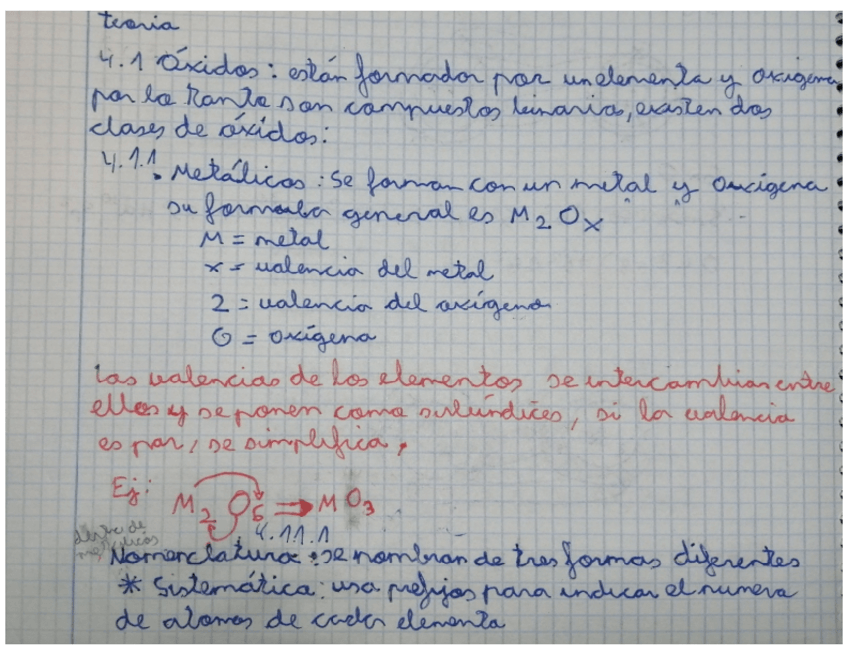 teoria
4.1 Óxidos: están formador por un elemento y oxigeno
por lo tanto son compuestos binarios, existen dos
clases de óxidos:
4.1.1 . Metálicos: Se forman con un metal y oxígeno
su formula general es M2 Ox
M = metal
x = valencia del metal
2 = valencia del oxígeno
O = oxígeno
Las valencias de los elementos se intercambian entre
ellos y se ponen como subíndices, si la valencia
es par, se simplifica,
Ej: M2 O6 ⇒ M O3
dentro de
4.1.1.1
Nomenclatura: se nombran de tres formas diferentes
* Sistemática: usa prefijos para indicar el numero
de atomos de cada elemento